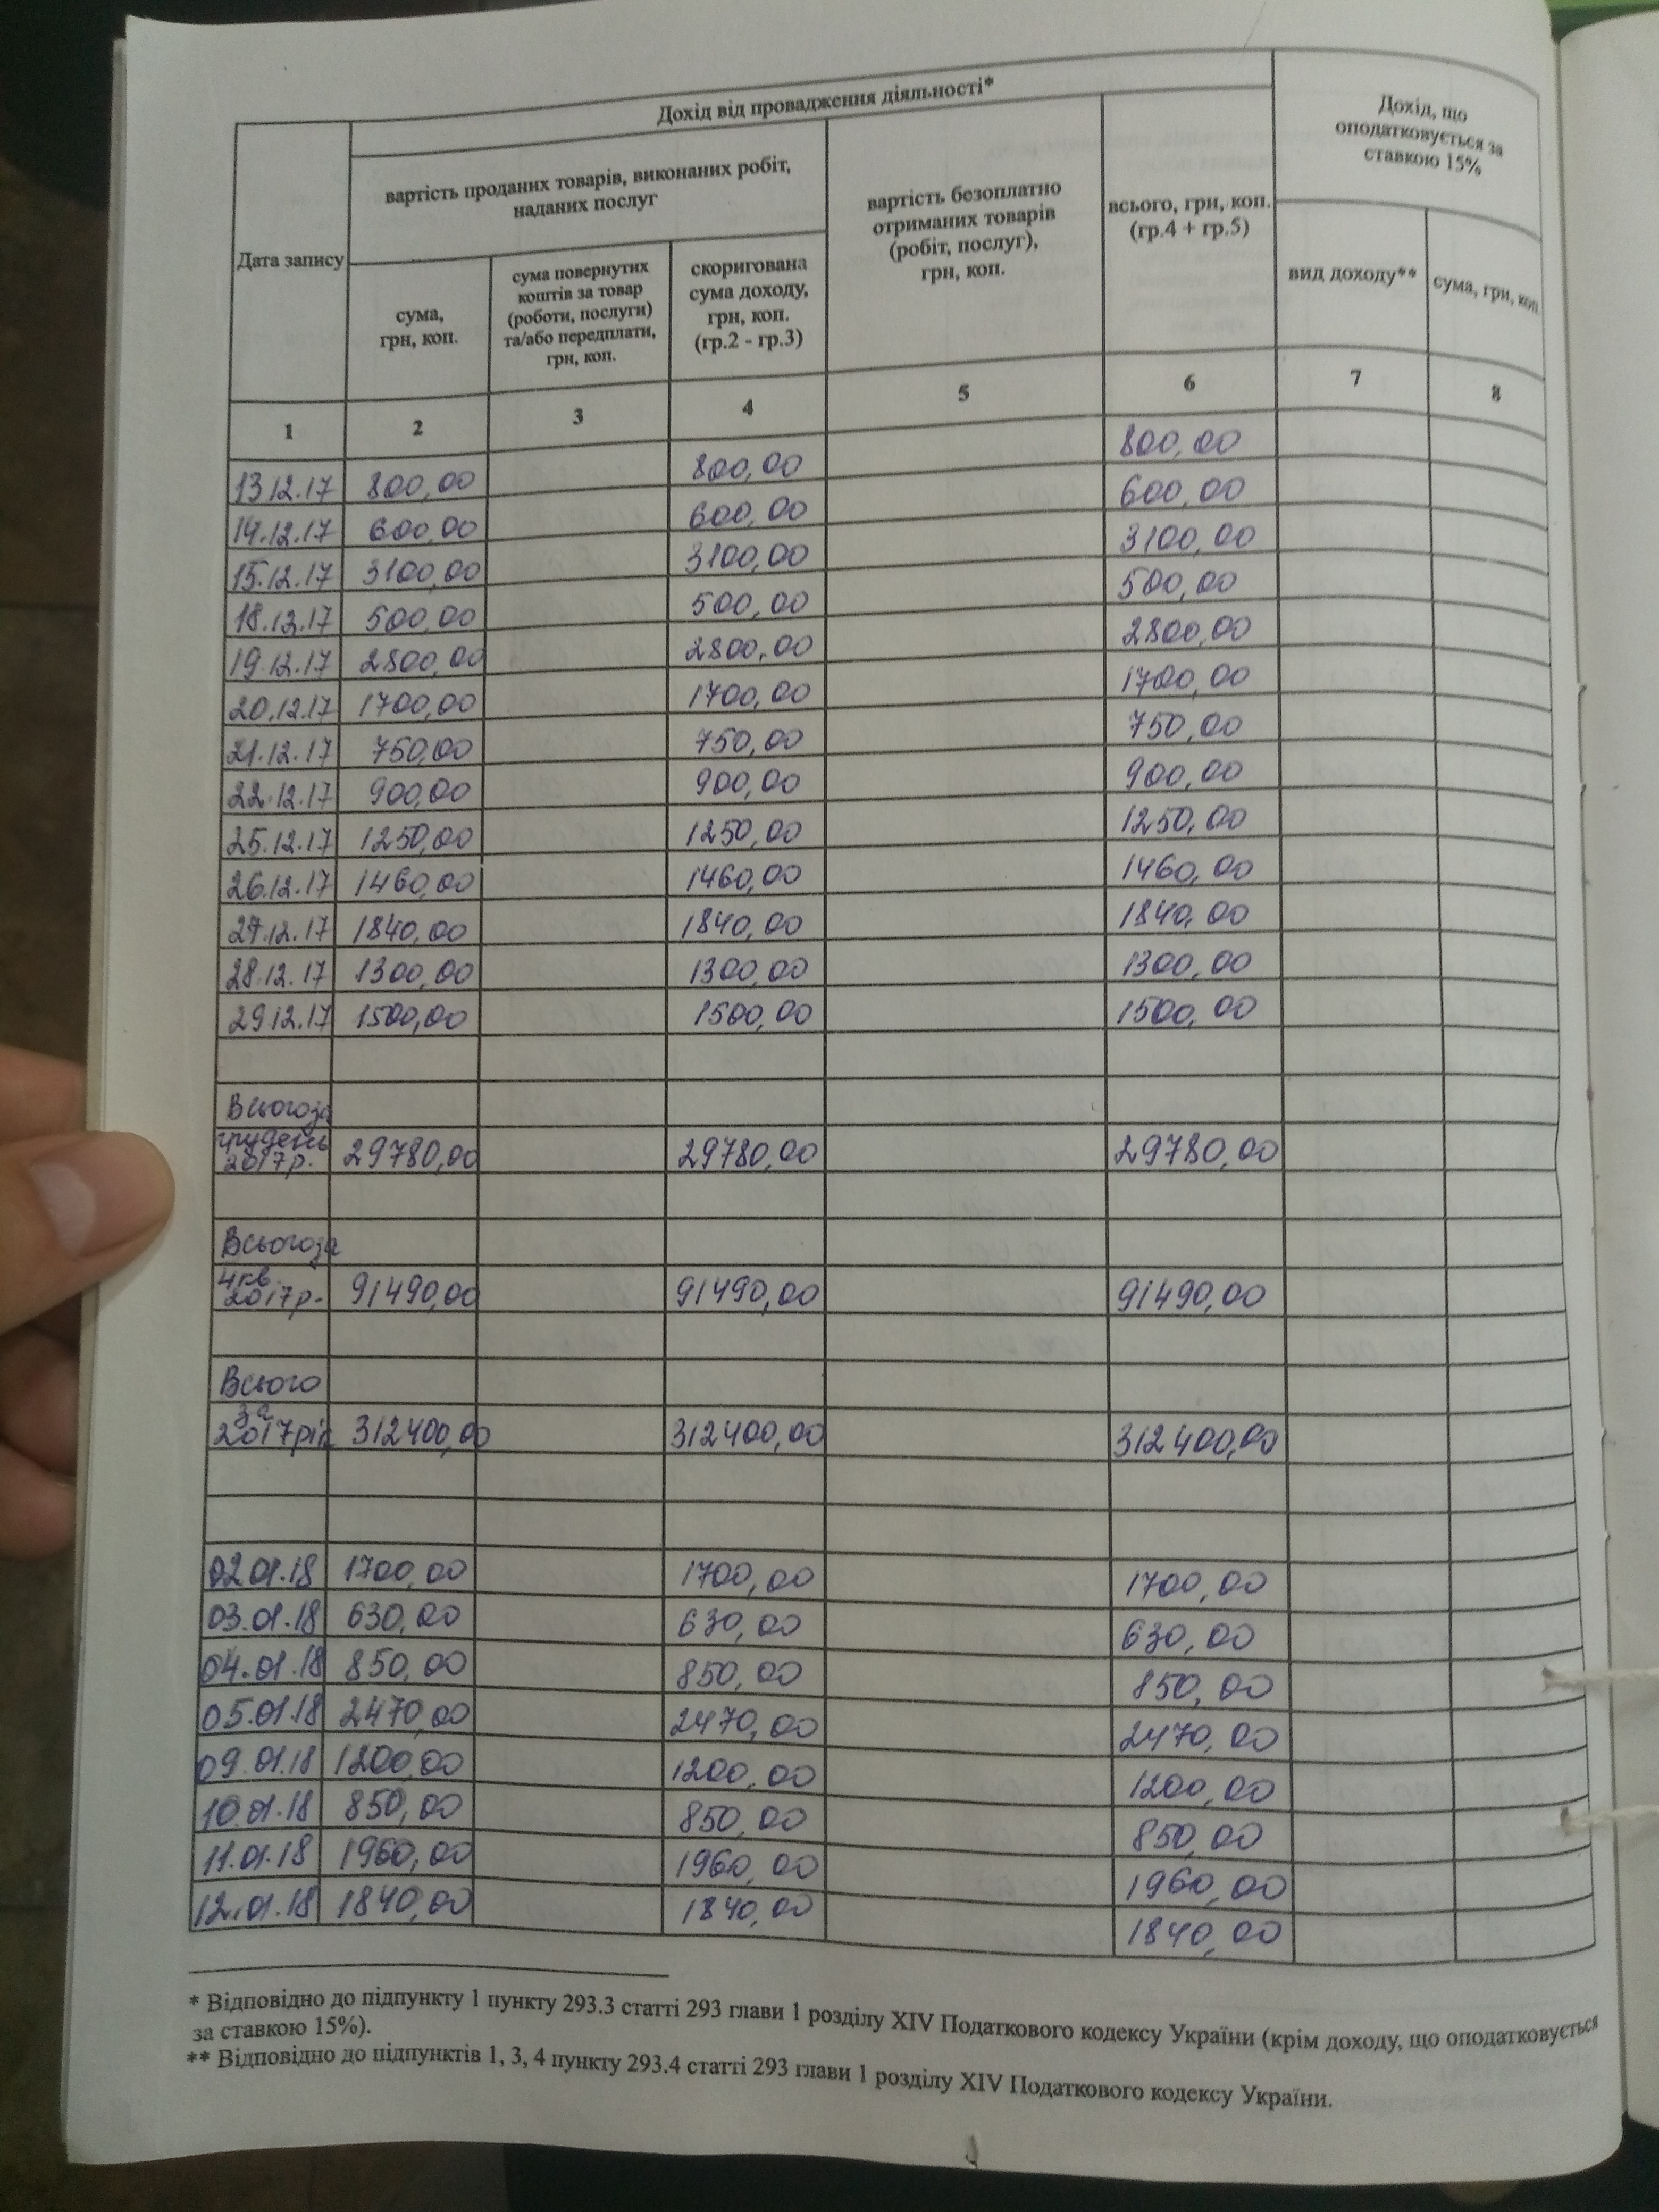 Дохід від провадження діяльності*
Дохід, що
оподатковується за
ставкою 15%
Дата запису
вартість проданих товарів, виконаних робіт,
наданих послуг
вартість безоплатно
отриманих товарів
(робіт, послуг),
грн, коп.
всього, грн, коп.
(гр.4 + гр.5)
сума,
грн, коп.
сума повернутих
коштів за товар
(роботи, послуги)
та/або передплати,
грн, коп.
скоригована
сума доходу,
грн, коп.
(гр.2 - гр.3)
вид доходу**
сума, грн, коп
1 2 3 4 5 6 7 8
13 12.17 800,00 800,00 800,00
14.12.17 600,00 600,00 600,00
15.12.17 3100,00 3100,00 3100,00
18.12.17 500,00 500,00 500,00
19.12.17 2800,00 2800,00 2800,00
20.12.17 1700,00 1700,00 1700,00
21.12.17 750,00 750,00 750,00
22.12.17 900,00 900,00 900,00
25.12.17 1250,00 1250,00 1250,00
26.12.17 1460,00 1460,00 1460,00
27.12.17 1840,00 1840,00 1840,00
28.12.17 1300,00 1300,00 1300,00
29 12.17 1500,00 1500,00 1500,00
Всього за
грудень
2017р. 29780,00 29780,00 29780,00
Всього за
4 кв.
2017р. 91490,00 91490,00 91490,00
Всього
за
2017рік 312400,00 312400,00 312400,00
02 01.18 1700,00 1700,00 1700,00
03.01.18 630,00 630,00 630,00
04.01.18 850,00 850,00 850,00
05.01.18 2470,00 2470,00 2470,00
09.01.18 1200,00 1200,00 1200,00
10.01.18 850,00 850,00 850,00
11.01.18 1960,00 1960,00 1960,00
12.01.18 1840,00 1840,00 1840,00
* Відповідно до підпункту 1 пункту 293.3 статті 293 глави 1 розділу XIV Податкового кодексу України (крім доходу, що оподатковується
за ставкою 15%).
** Відповідно до підпунктів 1, 3, 4 пункту 293.4 статті 293 глави 1 розділу XIV Податкового кодексу України.